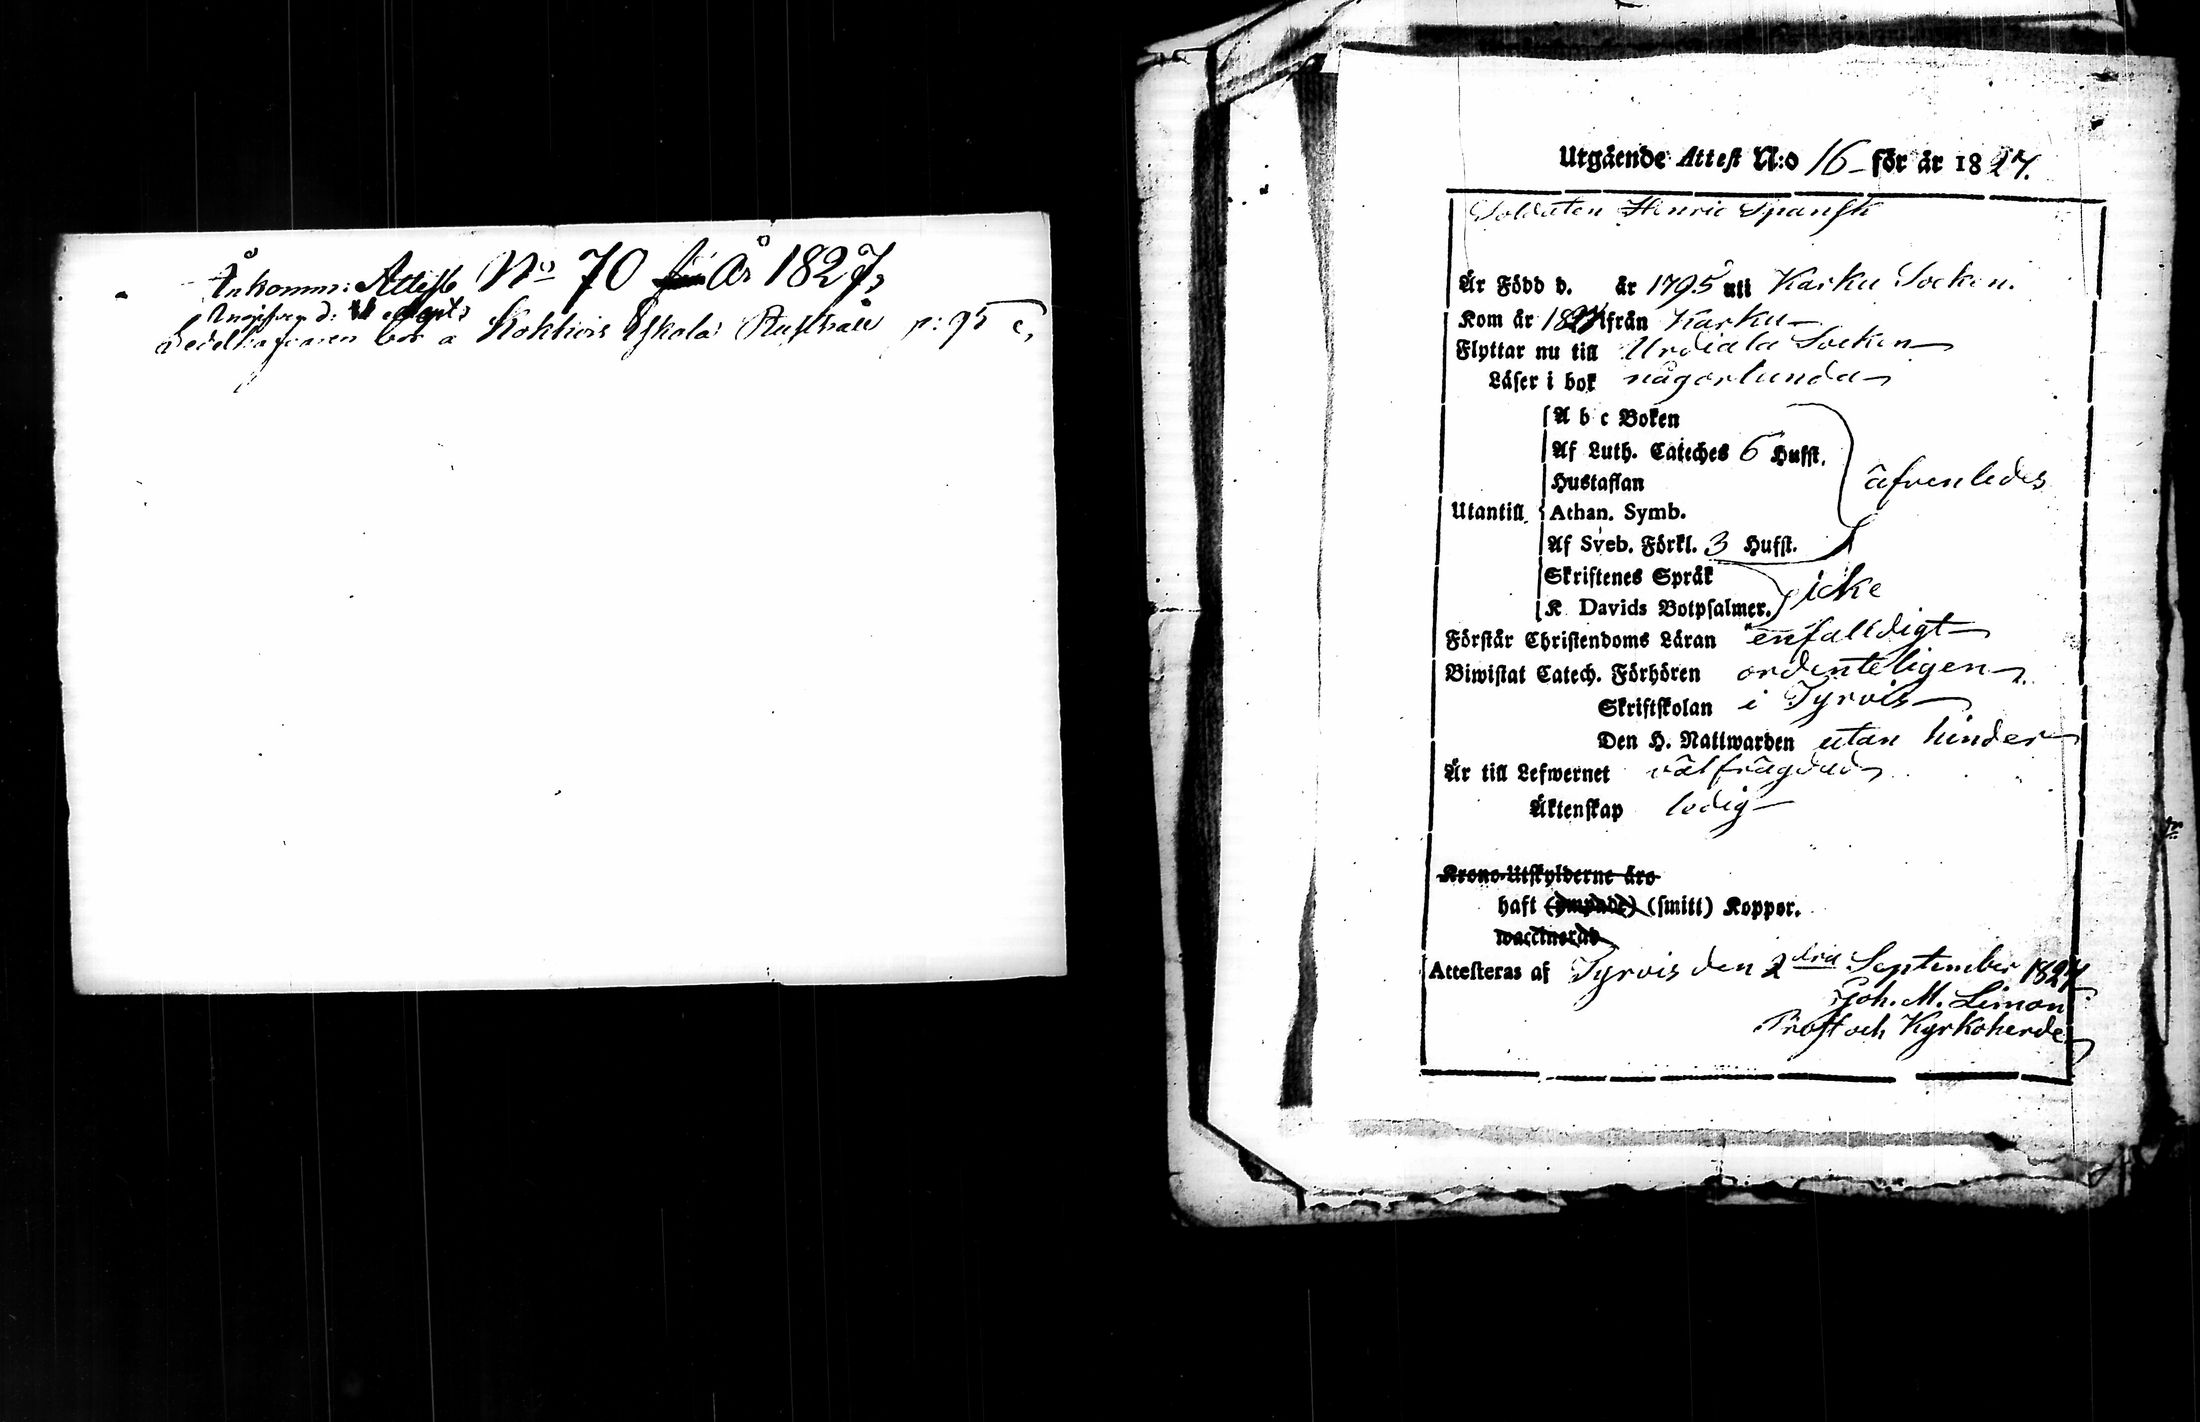 Ankomm: Attest No 70 för År 1827,
Angifven d: Sept:
Sedelhafvaren bor a Kokkois Eskola Rusthåll p: 95 c,
Utgående Attest N:o 16 för år 1827.
Soldaten Henric Spansk
Är Född d. år 1795 uti Karku Socken.
Kom år 1827 ifrån Karku
Flyttar nu till Urdiala Socken
Läser i bok någorlunda
A b c Boken
Af Luth. Cateches 6 Hufst.
Hustaflan
äfvenledes
Utantill Athan. Symb.
Af Sveb. Förkl. 3 Hufst.
Skriftenes Språk
icke
K Davids Botpsalmer.
Förstår Christendoms Läran enfalldigt
Biwistat Catech. Förhören ordenteligen
Skriftskolan i Tyrvis
Den H. Nattwarden utan hinder
Är till Lefwernet välfrägdad
Äktenskap ledig
Krono-Utskylderne äro
haft (ympade) (smitt) Koppor.
waccinerad
Attesteras af Tyrvis den 2dra September 1827
Joh. M. Limon
Prost och Kyrkoherde